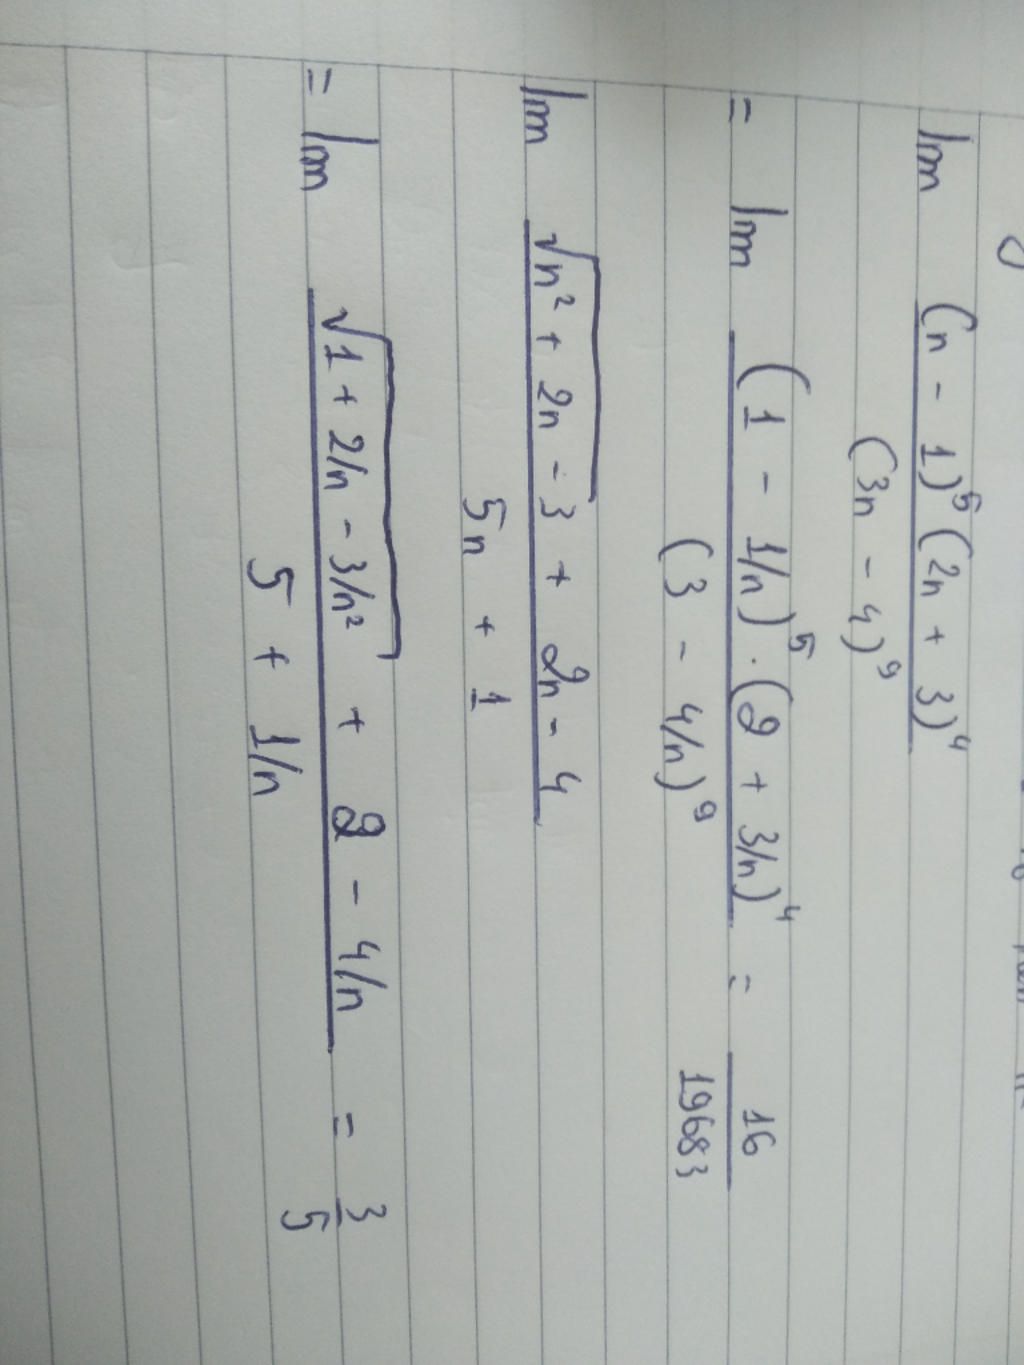 lim (n - 1)⁵(2n + 3)⁴
(3n - 4)⁹
= lim (1 - 1/n)⁵ . (2 + 3/n)⁴ = 16
(3 - 4/n)⁹ 19683
lim √n² + 2n - 3 + 2n - 4
5n + 1
= lim √1 + 2/n - 3/n² + 2 - 4/n = 3
5 + 1/n 5